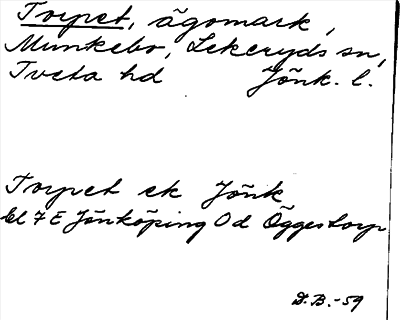 Torpet, ägomark,
Munkebo, Lekeryds sn,
Tveta hd Jönk. l.
Torpet ek Jönk
bl 7 E Jönköping 0 d Öggestorp
D.B.-59